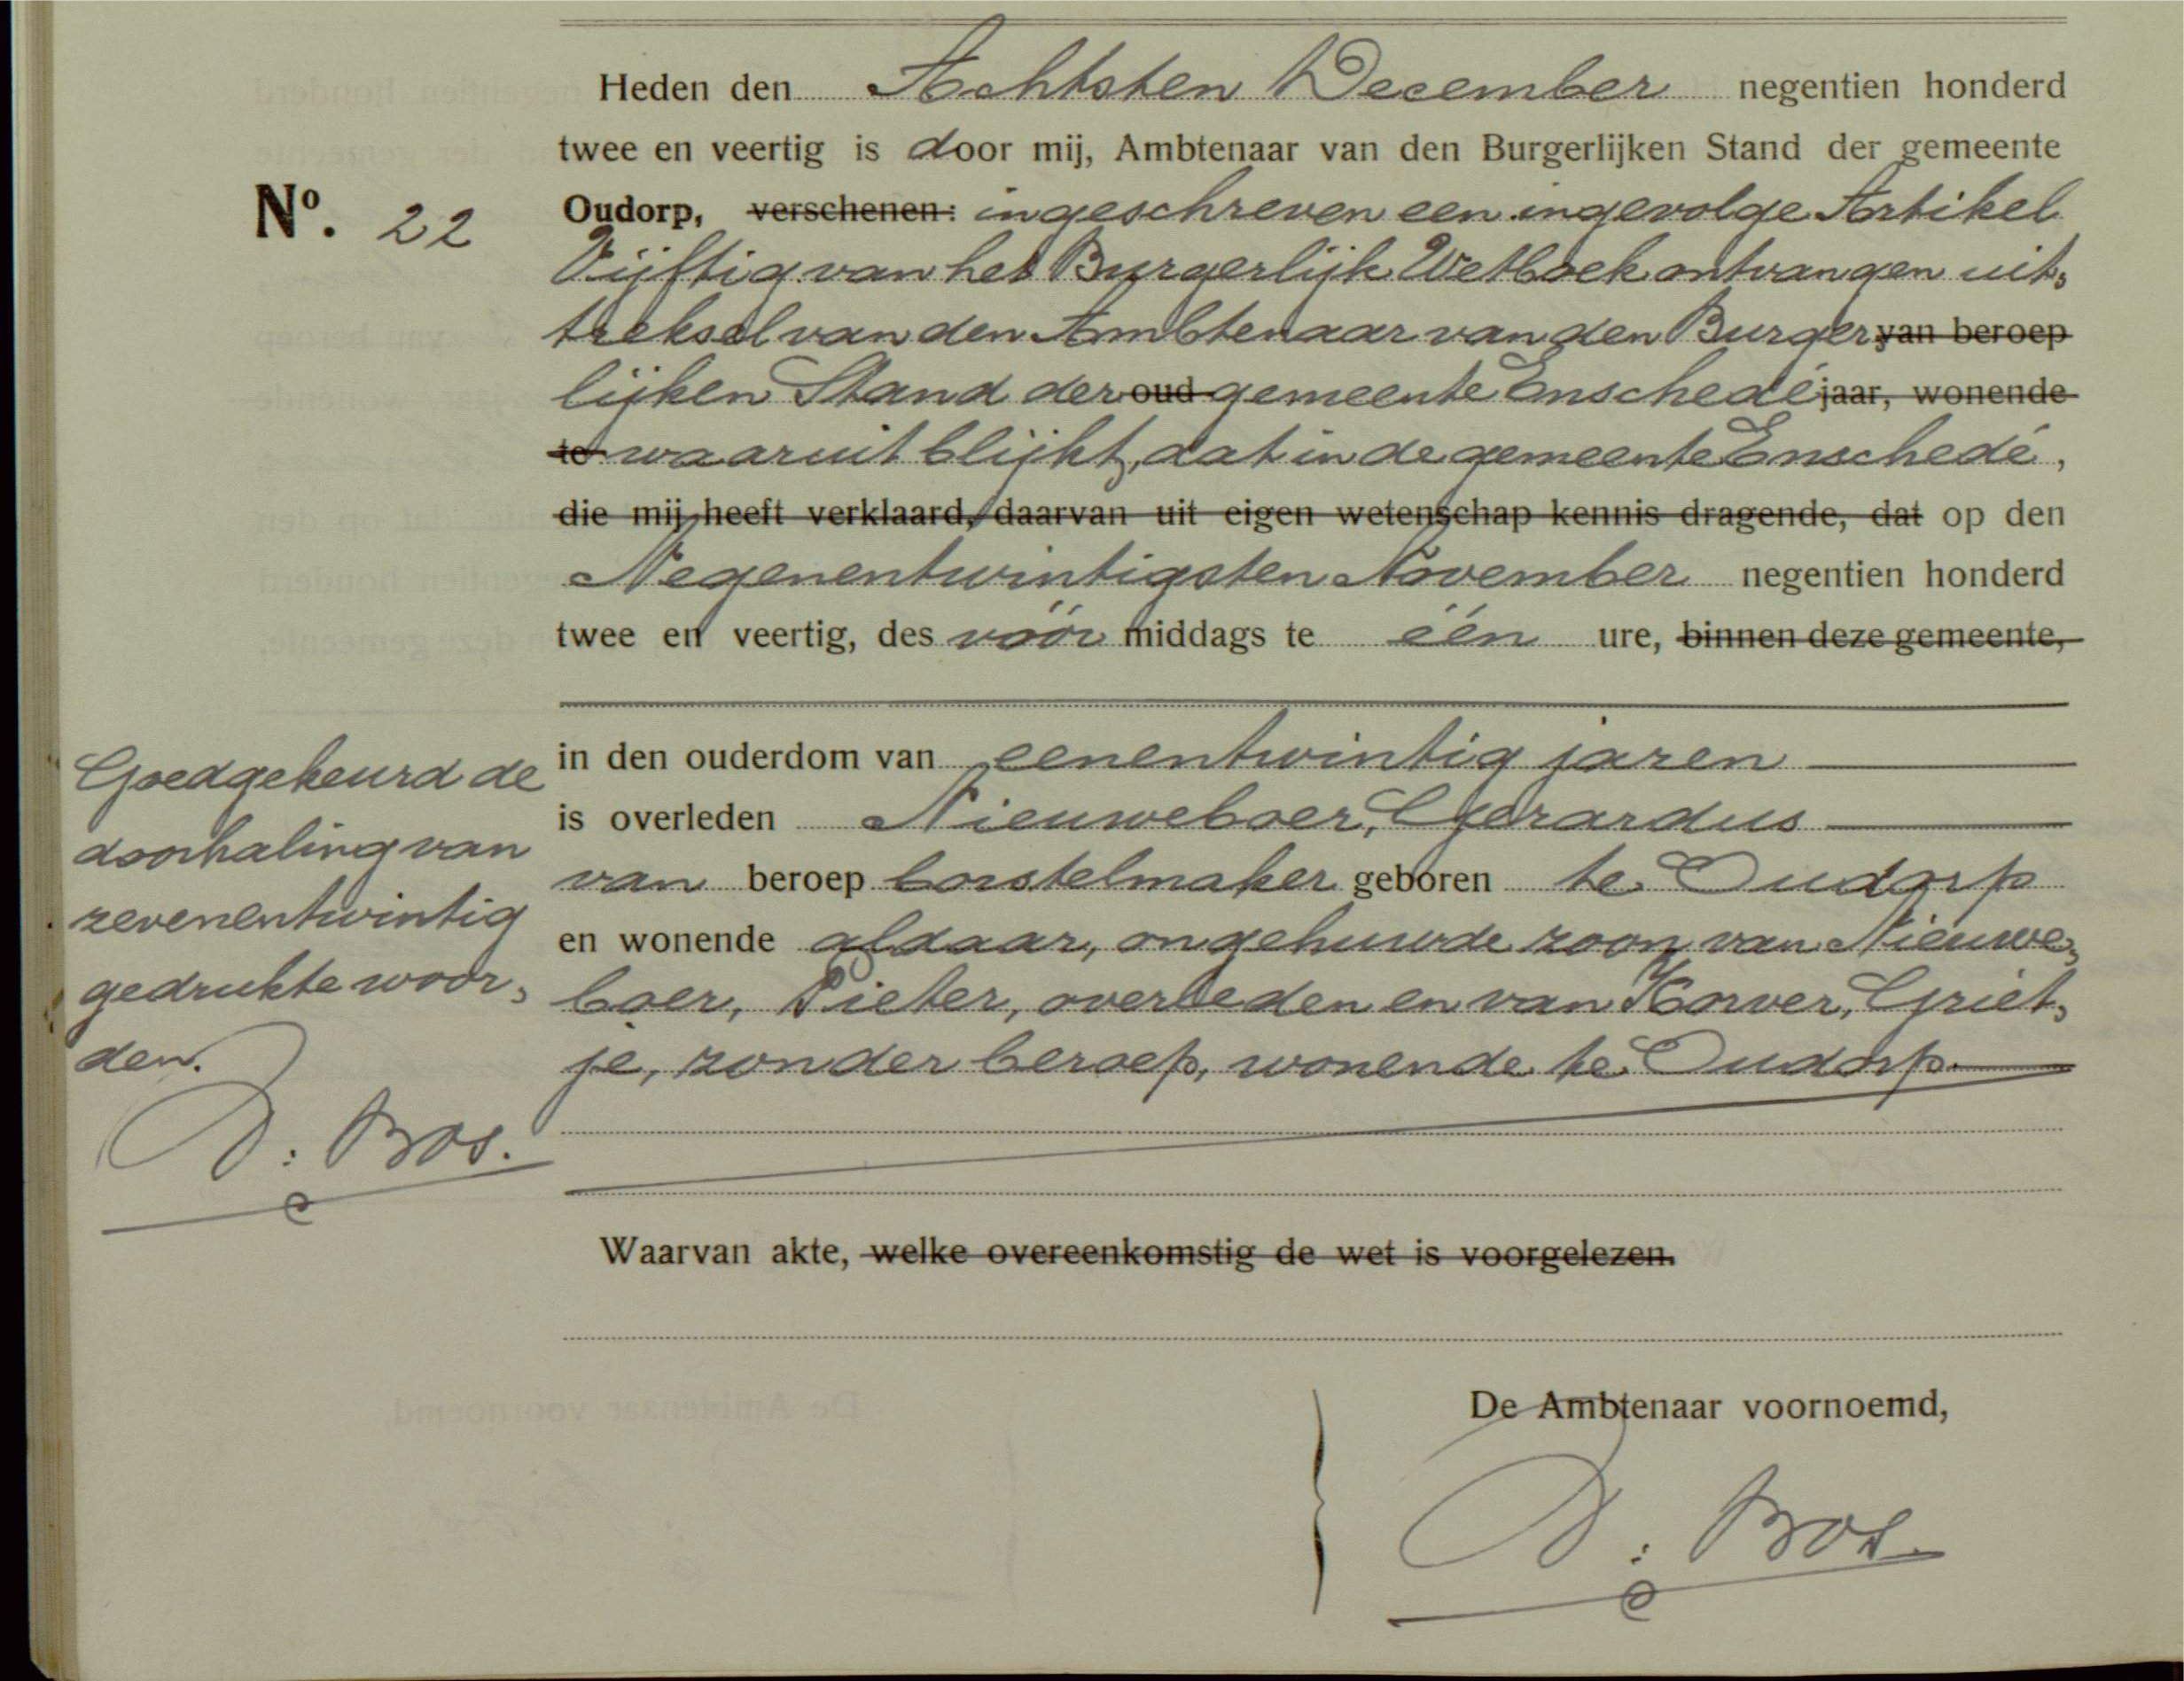 Heden den Achtsten December negentien honderd
twee en veertig is door mij, Ambtenaar van den Burgerlijken Stand der gemeente
Nº. 22
Oudorp, verschenen: ingeschreven een ingevolge Artikel
Vijftig van het Burgerlijk Wetboek ontvangen uit-
treksel van den Ambtenaar van den Burger van beroep
lijken Stand der oud gemeente Enschedé jaar, wonende
te waaruit blijkt, dat in de gemeente Enschedé,
die mij heeft verklaard, daarvan uit eigen wetenschap kennis dragende, dat op den
Negenentwintigsten November negentien honderd
twee en veertig, des vóór middags te één ure, binnen deze gemeente,
in den ouderdom van eenentwintig jaren
is overleden Nieuweboer, Gerardus
van beroep borstelmaker geboren te Oudorp
en wonende aldaar, ongehuwde zoon van Nieuwe-
boer, Pieter, overleden en van Korver, Griet-
je, zonder beroep, wonende te Oudorp.
Goedgekeurd de
doorhaling van
zevenentwintig
gedrukte woor-
den.
D: Bos.
Waarvan akte, welke overeenkomstig de wet is voorgelezen.
De Ambtenaar voornoemd,
D: Bos.